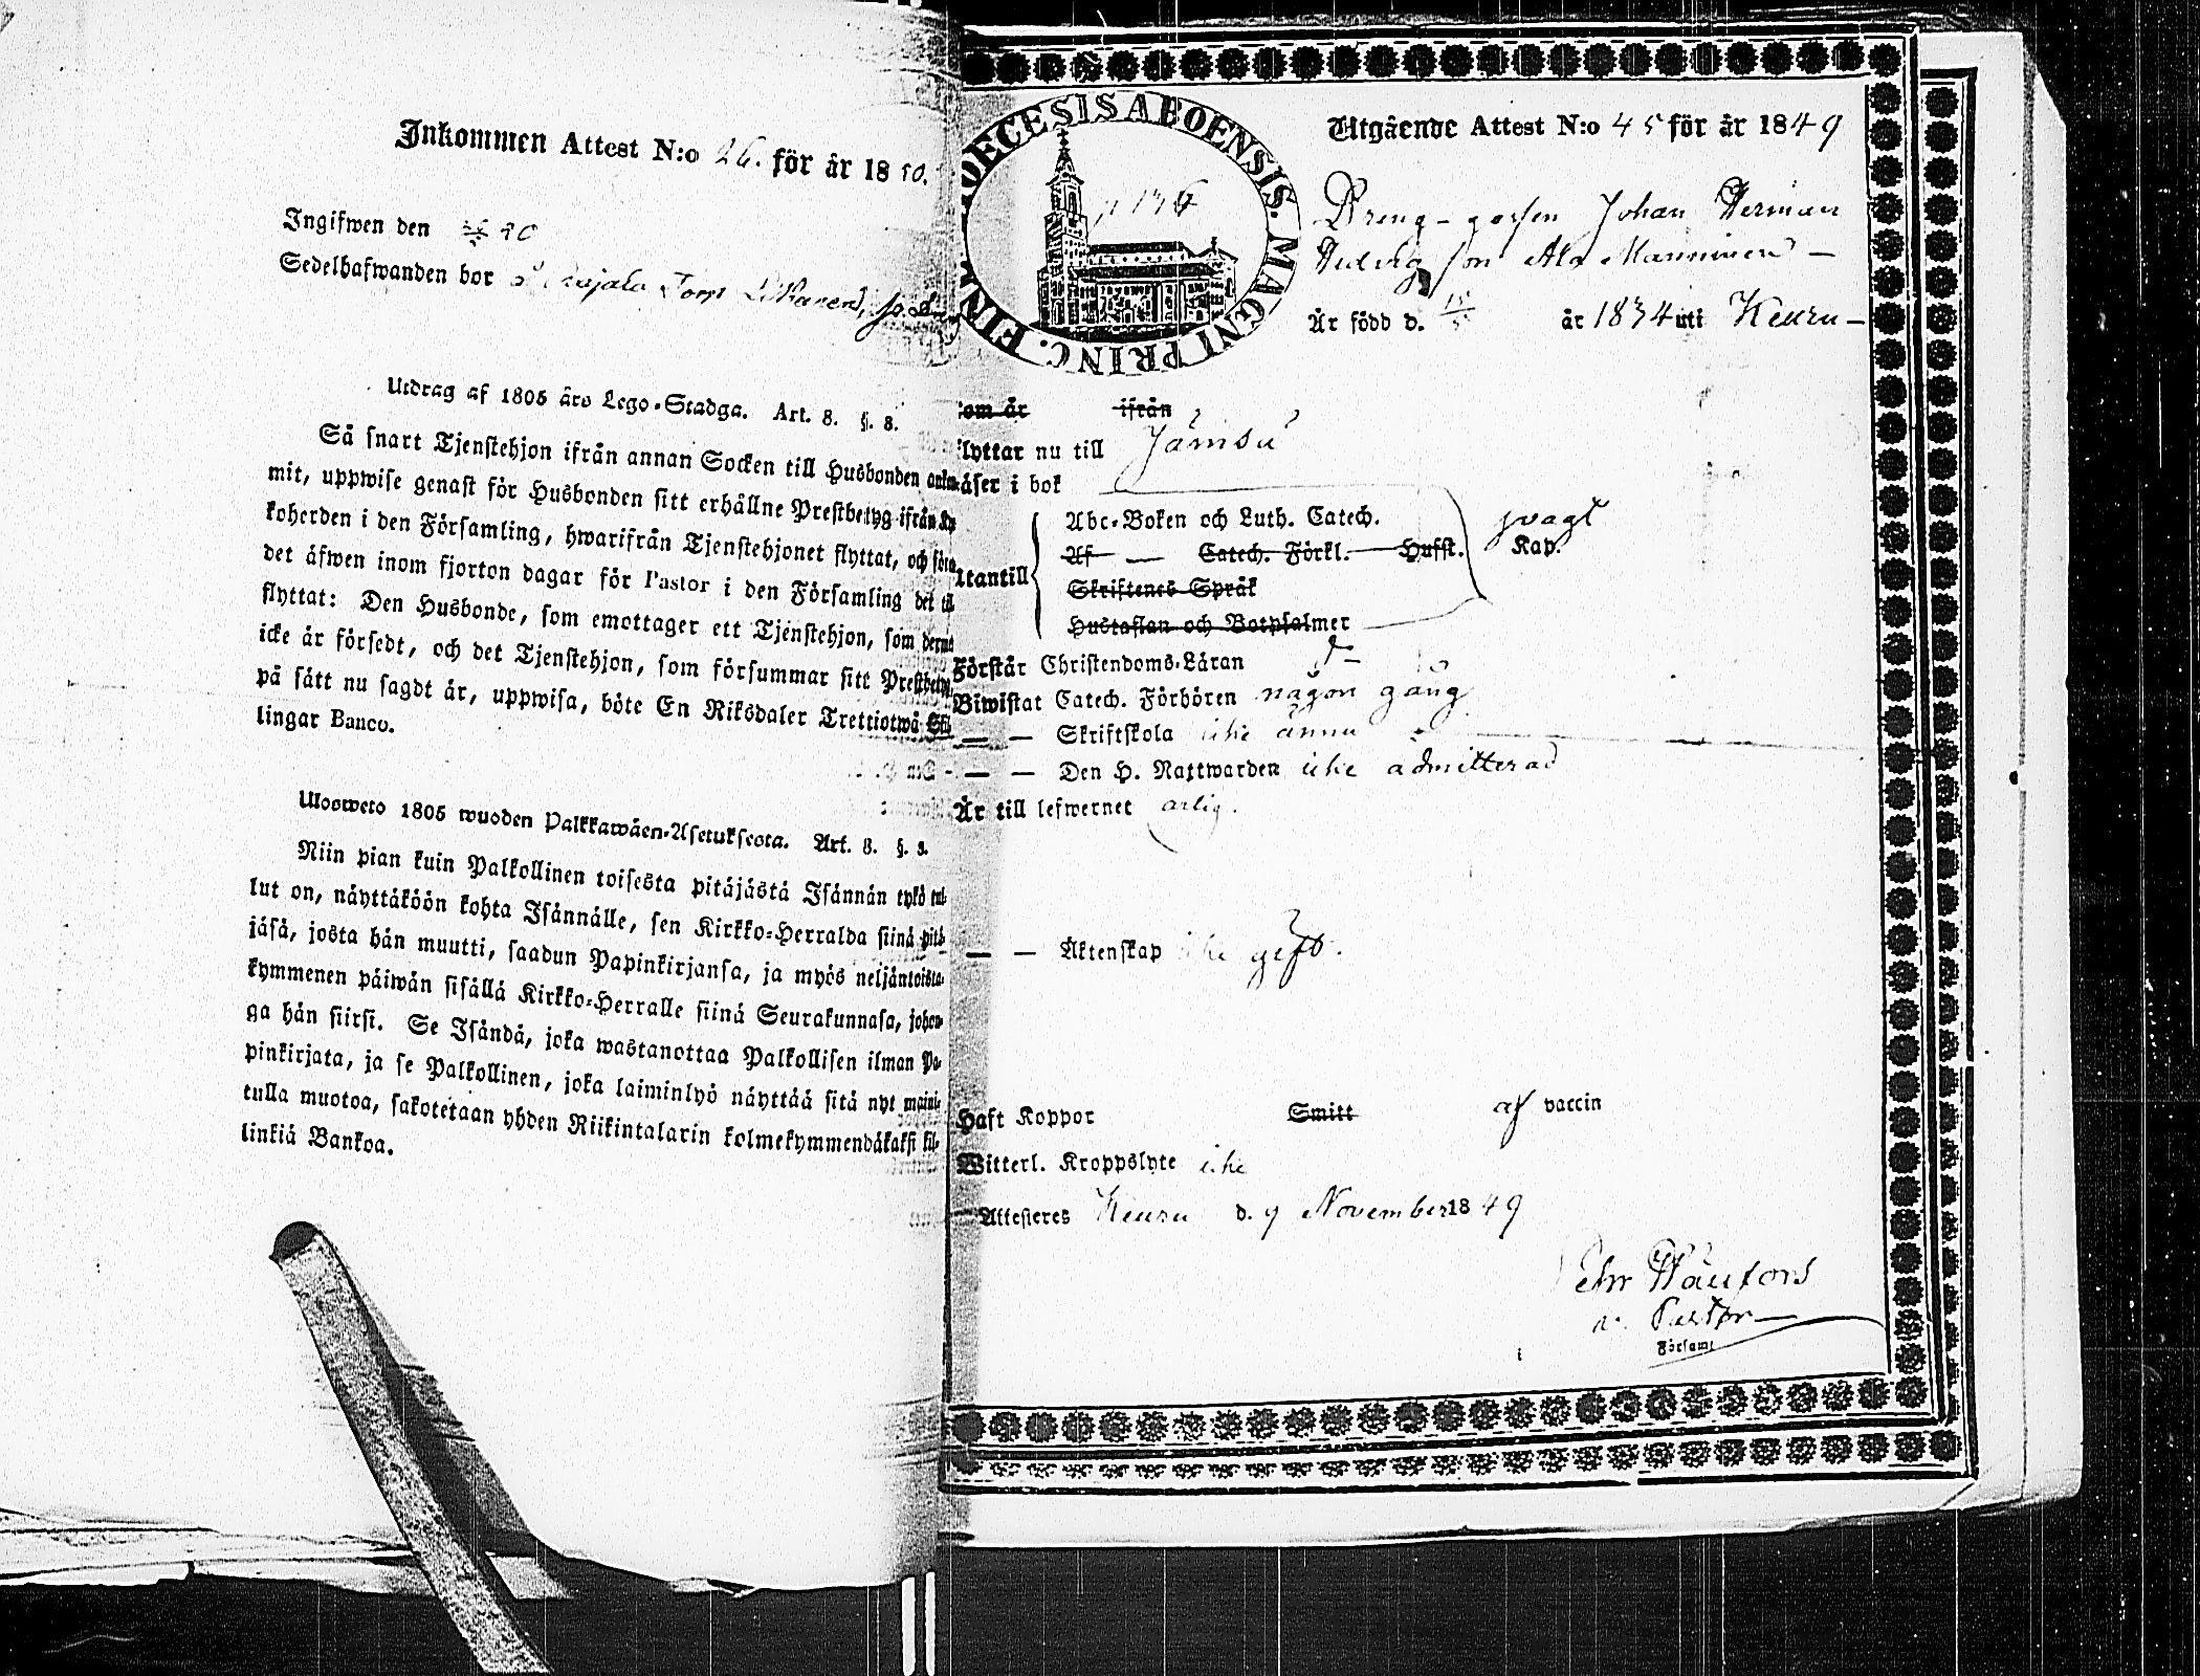 Inkommen Attest N:o 26. för år 1850.
Ingifwen den
Sedelhafwanden bor
Utdrag af 1805 års Lego-Stadga. Art. 8. §. 8.
Så snart Tjenstehjon ifrån annan Socken till Husbonden
mit, uppwise genast för Husbonden sitt erhållne Prestbetyg ifrån
koherden i den Församling, hwarifrån Tjenstehjonet flyttat, och
det äfwen inom fjorton dagar för Pastor i den Församling det
flyttat: Den Husbonde, som emottager ett Tjenstehjon, som
icke är försedt, och det Tjenstehjon, som försummar sitt
på sätt nu sagdt är, uppwisa, böte En Riksdaler Trettiotwå Skil-
lingar Banco.
Ulosweto 1805 wuoden Palkkawäen-Asetuksesta. Art. 8. §. 8.
Niin pian kuin Palkollinen toisesta pitäjästä Isännän tykö tul-
lut on, näyttäköön kohta Isännälle, sen Kirkko-Herralda siinä pitä-
jäsä, josta hän muutti, saadun Papinkirjansa, ja myös neljäntoista-
kymmenen päiwän sisällä Kirkko-Herralle siinä Seurakunnasa, johon-
ga hän siirsi. Se Isändä, joka wastanottaa Palkollisen ilman Pa-
pinkirjata, ja se Palkollinen, joka laiminlyö näyttää sitä nyt maini-
tulla muotoa, sakotetaan yhden Riikintalarin kolmekymmendäkaksi kil-
linkiä Bankoa.
DIOECESIS ABOENSIS. MAGNI PRINC. FINL
Utgående Attest N:o 45 för år 1849
Dreng-gossen Johan Herman
Hedvig son Manninen
År född d. 15/5 år 1834 uti Keuru
som är ifrån
flyttar nu till Jämsä
Läser i bok
Utantill
Abc-Boken och Luth. Catech. svagt
Af — Catech. Förkl. — Husst. Kap.
Skriftenes Språk
Hustaflan och Botpsalmer
Förstår Christendoms-Läran
Biwistat Catech. Förhören någon gång
— — Skriftskola icke ännu
— — Den H. Nattwarden icke admitterad
Är till lefwernet ärlig.
— — Äktenskap icke gift.
Haft Koppor Smitt af vaccin
Witterl. Kroppslyte icke
Attesteres Keuru d. 9 November 1849
v. Pastor
i Församl.